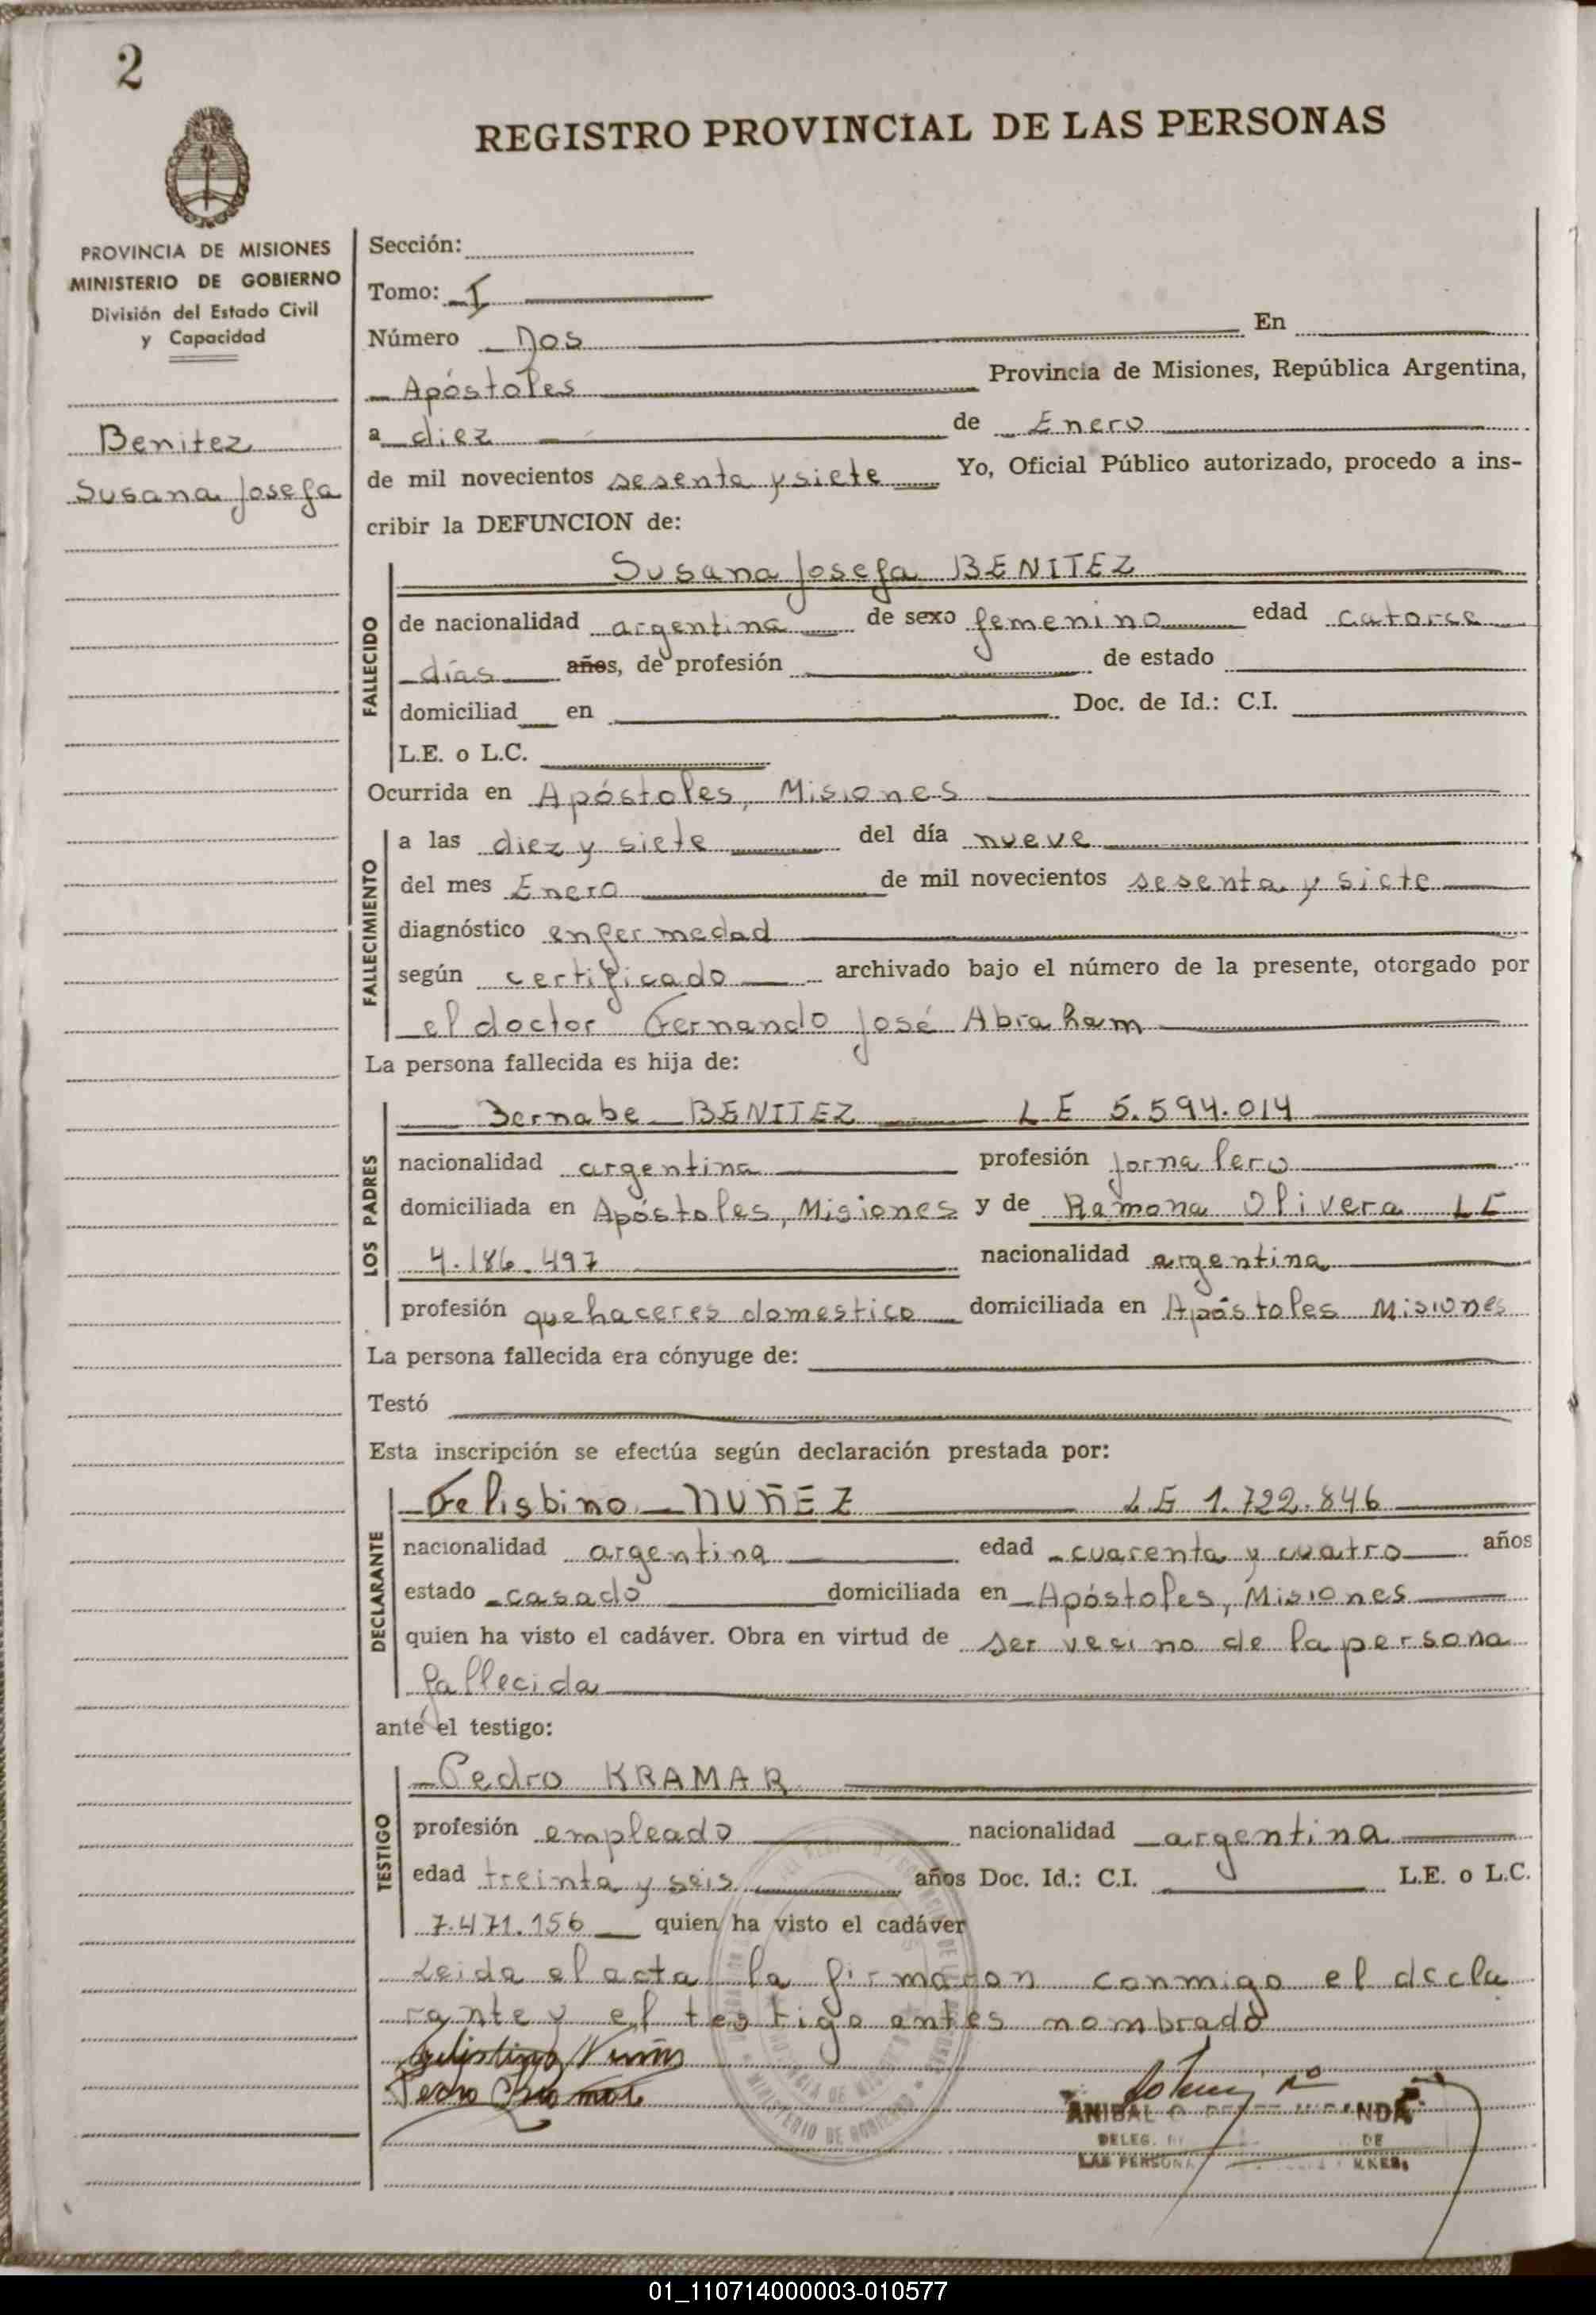 2
REGISTRO PROVINCIAL DE LAS PERSONAS
PROVINCIA DE MISIONES
MINISTERIO DE GOBIERNO
División del Estado Civil
y Capacidad
Benitez
Susana Josefa
Sección:
Tomo: I
Número Dos En
Apóstoles Provincia de Misiones, República Argentina,
a diez de Enero
de mil novecientos sesenta y siete Yo, Oficial Público autorizado, procedo a ins-
cribir la DEFUNCION de:
Susana Josefa BENITEZ
FALLECIDO
de nacionalidad argentina de sexo femenino edad catorce
días años, de profesión de estado
domiciliad en Doc. de Id.: C.I.
L.E. o L.C.
Ocurrida en Apóstoles, Misiones
FALLECIMIENTO
a las diez y siete del día nueve
del mes Enero de mil novecientos sesenta y siete
diagnóstico enfermedad
según certificado archivado bajo el número de la presente, otorgado por
el doctor Fernando José Abraham
La persona fallecida es hija de:
LOS PADRES
Bernabe BENITEZ LE 5.594.014
nacionalidad argentina profesión jornalero
domiciliada en Apóstoles, Misiones y de Ramona Olivera LE
4.186.497 nacionalidad argentina
profesión quehaceres domestico domiciliada en Apóstoles Misiones
La persona fallecida era cónyuge de:
Testó
Esta inscripción se efectúa según declaración prestada por:
DECLARANTE
Felisbino NUÑEZ LE 1.722.846
nacionalidad argentina edad cuarenta y cuatro años
estado casado domiciliada en Apóstoles, Misiones
quien ha visto el cadáver. Obra en virtud de ser vecino de la persona
fallecida
ante el testigo:
TESTIGO
Pedro KRAMAR
profesión empleado nacionalidad argentina
edad treinta y seis años Doc. Id.: C.I. L.E. o L.C.
7.471.156 quien ha visto el cadáver
Leida el acta la firmaron conmigo el decla
rante y el testigo antes nombrado
Pedro Kramar
ANIBAL
DELEG. DE
LAS PERSONA
MINISTERIO DE GOBIERNO
01_110714000003-010577